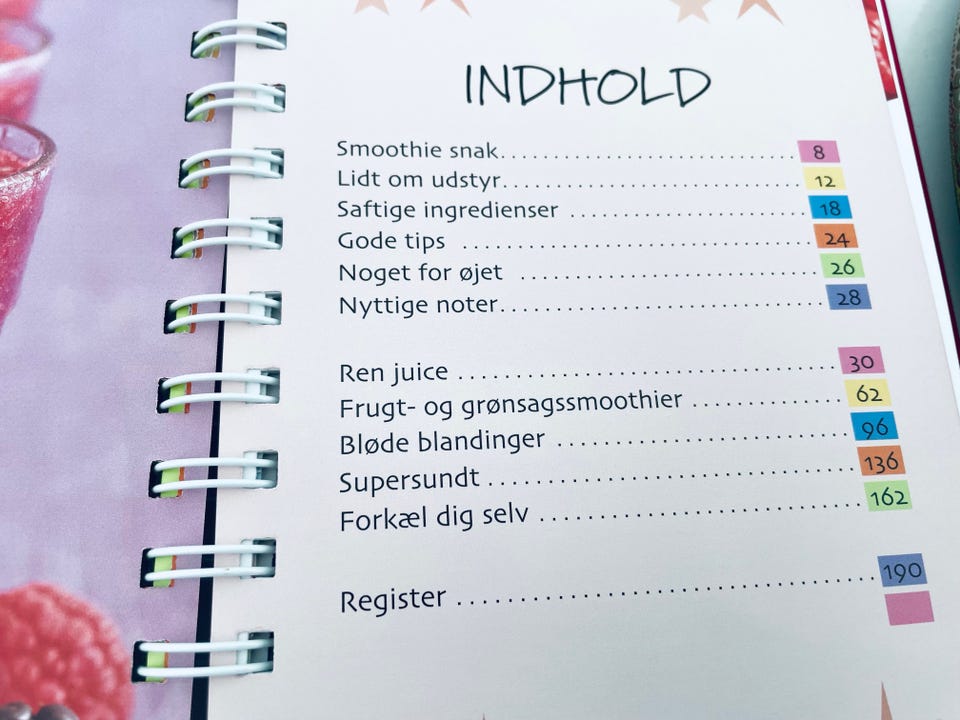 INDHOLD
Smoothie snak........................... 8
Lidt om udstyr........................... 12
Saftige ingredienser ..................... 18
Gode tips .............................. 24
Noget for øjet .......................... 26
Nyttige noter........................... 28
Ren juice .............................. 30
Frugt- og grønsagssmoothier ............ 62
Bløde blandinger ...................... 96
Supersundt ........................... 136
Forkæl dig selv ....................... 162
Register .............................. 190